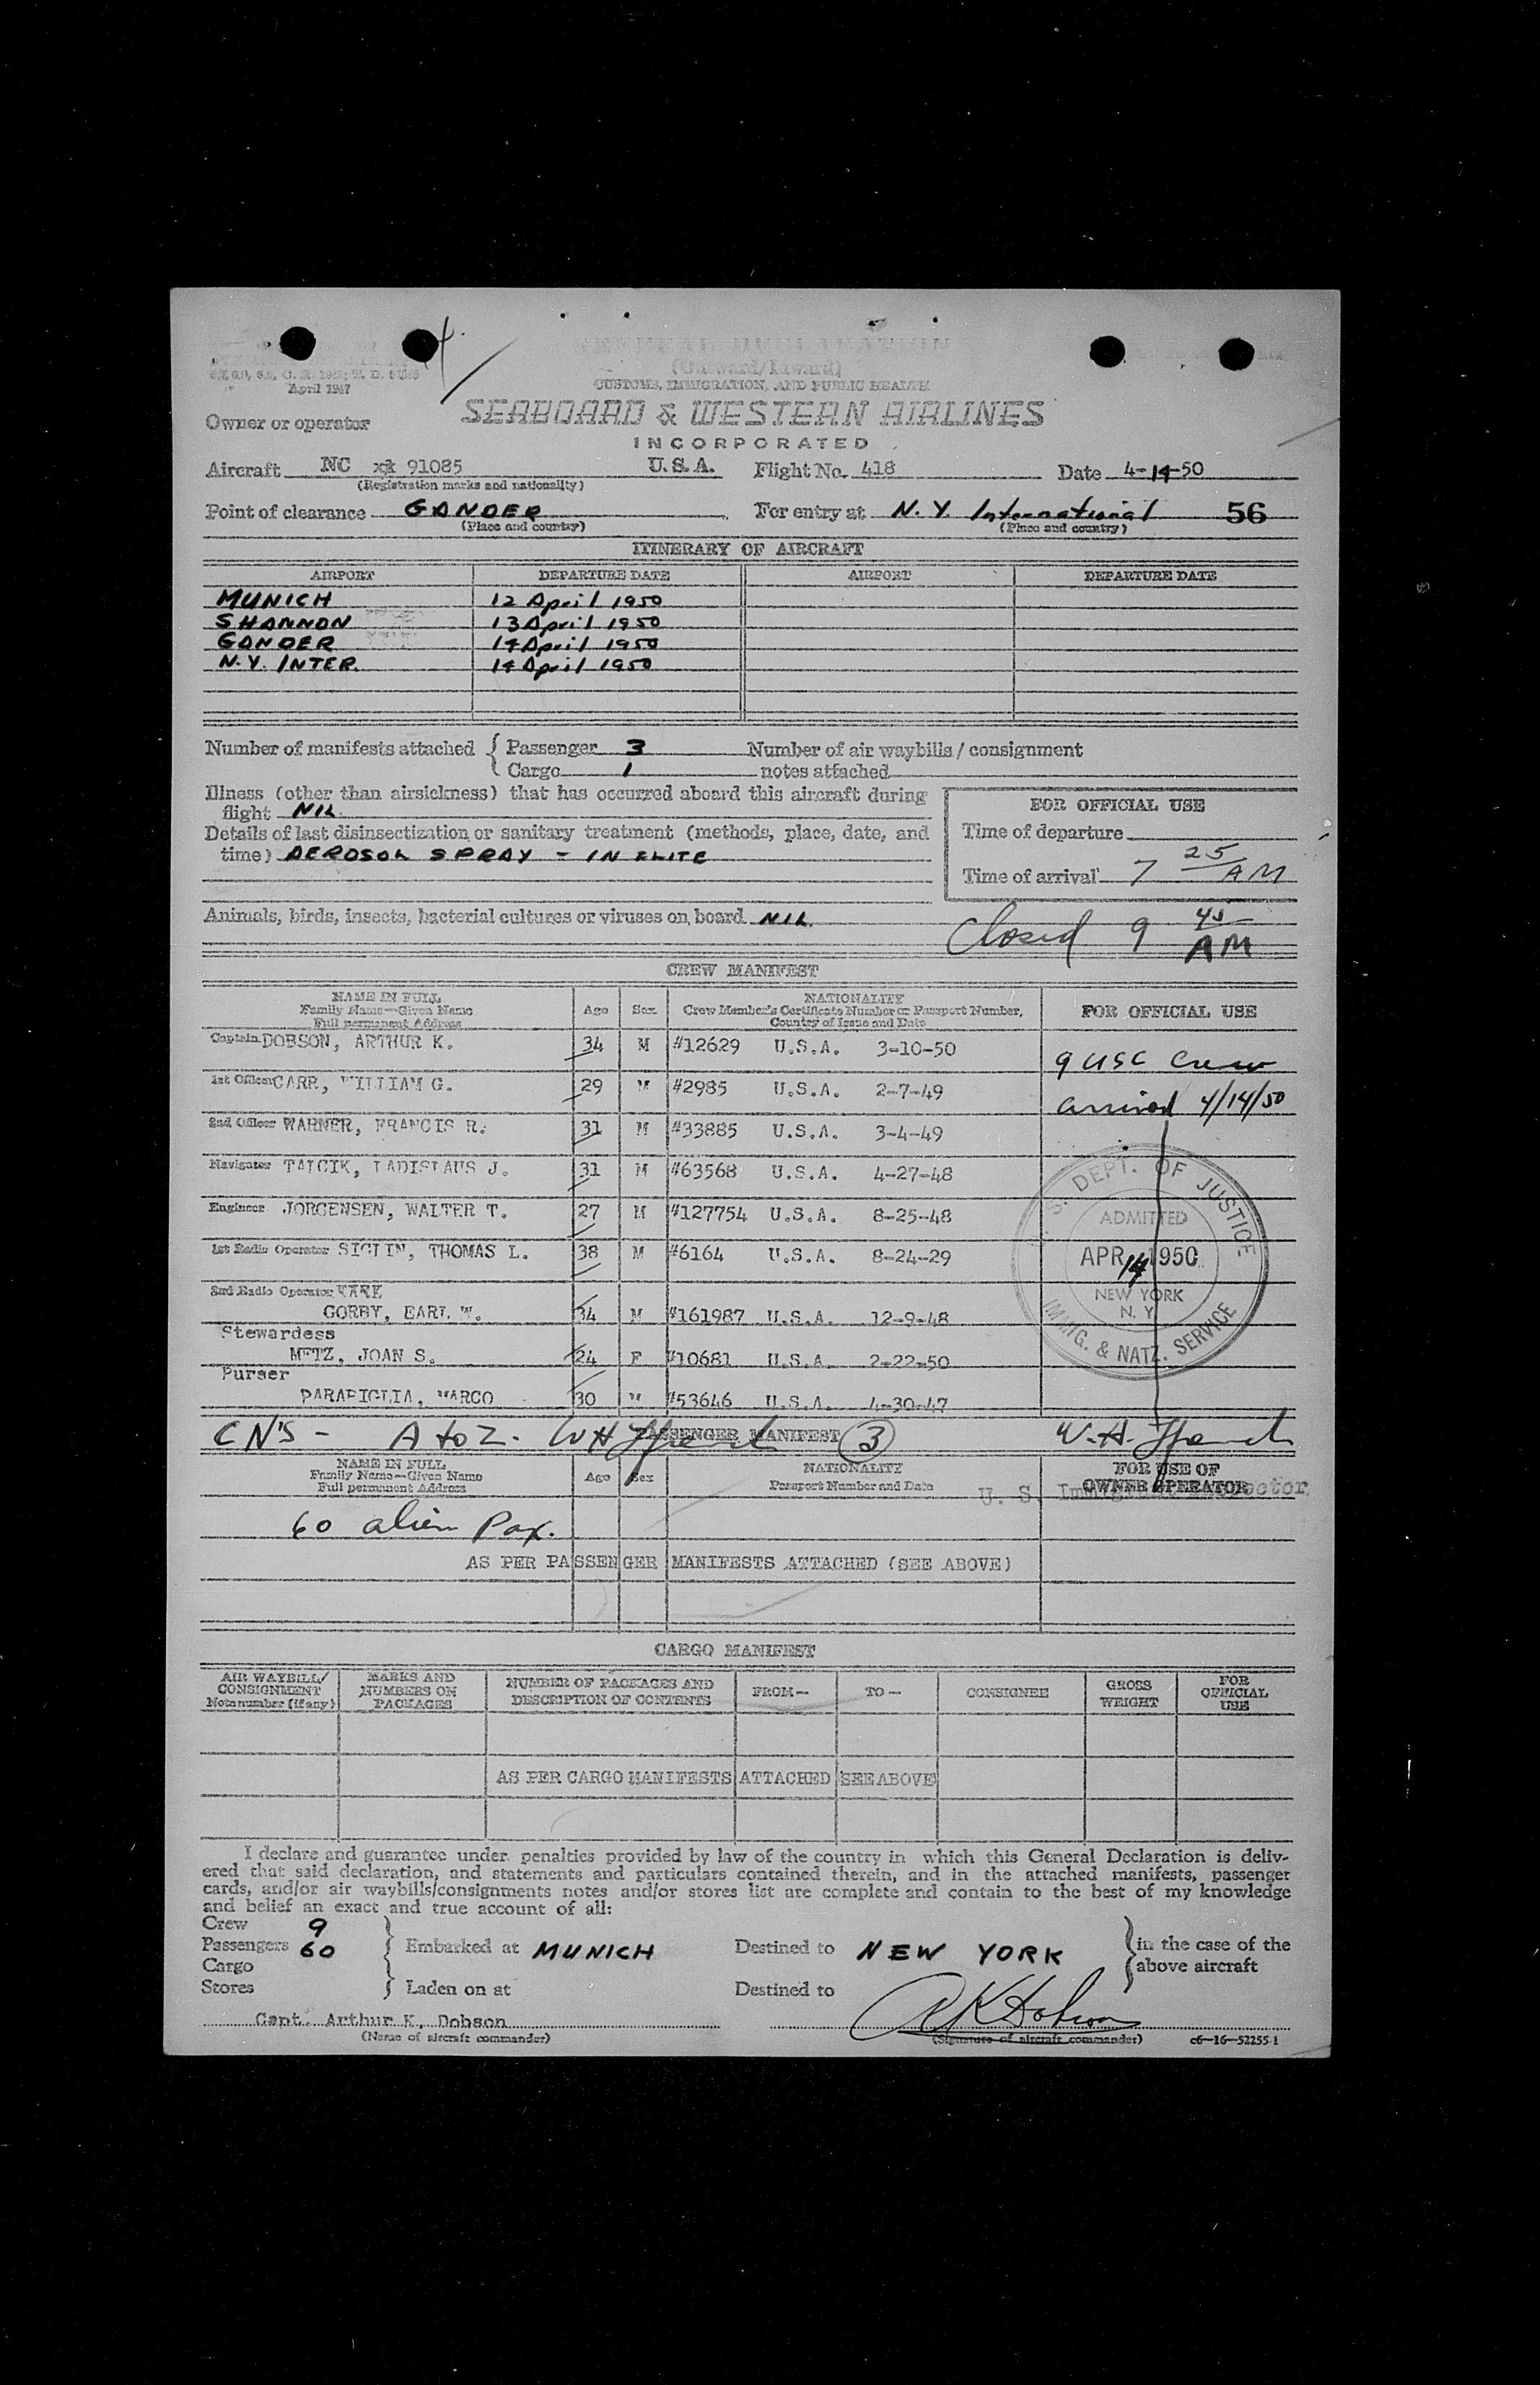 GENERAL DECLARATION
(Outward/Inward)
CUSTOMS, IMMIGRATION, AND PUBLIC HEALTH
April 1947
SEABOARD & WESTERN AIRLINES
Owner or operator
INCORPORATED
Aircraft NC 91085 U.S.A. Flight No. 418 Date 4-14-50
(Registration marks and nationality)
Point of clearance GANDER For entry at N.Y. International 56
(Place and country) (Place and country)
ITINERARY OF AIRCRAFT
AIRPORT DEPARTURE DATE AIRPORT DEPARTURE DATE
MUNICH 12 April 1950
SHANNON 13 April 1950
GANDER 14 April 1950
N.Y. INTER. 14 April 1950
Number of manifests attached { Passenger 3 Number of air waybills / consignment
Cargo 1 notes attached
Illness (other than airsickness) that has occurred aboard this aircraft during
flight NIL
FOR OFFICIAL USE
Details of last disinsectization or sanitary treatment (methods, place, date, and
time) AEROSOL SPRAY - IN FLITE
Time of departure
Time of arrival 7 25 AM
Animals, birds, insects, bacterial cultures or viruses on board NIL.
Closed 9 45 AM
CREW MANIFEST
NAME IN FULL
Family Name—Given Name
Full permanent Address
Age Sex
NATIONALITY
Crew Member's Certificate Number or Passport Number,
Country of Issue and Date
FOR OFFICIAL USE
Captain DOBSON, ARTHUR K. 34 M #12629 U.S.A. 3-10-50
9 USC Crew
1st Officer CARR, WILLIAM G. 29 M #2985 U.S.A. 2-7-49
arrived 4/14/50
2nd Officer WARNER, FRANCIS R. 31 M #33885 U.S.A. 3-4-49
Navigator TALCIK, LADISLAUS J. 31 M #63568 U.S.A. 4-27-48
Engineer JORGENSEN, WALTER T. 27 M #127754 U.S.A. 8-25-48
1st Radio Operator SIGLIN, THOMAS L. 38 M #6164 U.S.A. 8-24-29
2nd Radio Operator
GORBY, EARL W. 34 M #161987 U.S.A. 12-9-48
Stewardess
METZ, JOAN S. 24 F #10681 U.S.A. 2-22-50
Purser
PARAPIGLIA, MARCO 30 M #53646 U.S.A. 4-30-47
U.S. DEPT. OF JUSTICE
ADMITTED
APR 14 1950
NEW YORK
N. Y.
IMMIG. & NATZ. SERVICE
CN'S - A to Z. PASSENGER MANIFEST 3
NAME IN FULL
Family Name—Given Name
Full permanent Address
Age Sex
NATIONALITY
Passport Number and Date
FOR USE OF
OWNER OPERATOR
U. S. Immigrant Inspector
60 alien Pax.
AS PER PASSENGER MANIFESTS ATTACHED (SEE ABOVE)
CARGO MANIFEST
AIR WAYBILL/
CONSIGNMENT
Note number (if any)
MARKS AND
NUMBERS ON
PACKAGES
NUMBER OF PACKAGES AND
DESCRIPTION OF CONTENTS
FROM—
TO—
CONSIGNEE
GROSS
WEIGHT
FOR
OFFICIAL
USE
AS PER CARGO MANIFESTS ATTACHED SEE ABOVE
I declare and guarantee under penalties provided by law of the country in which this General Declaration is deliv-
ered that said declaration, and statements and particulars contained therein, and in the attached manifests, passenger
cards, and/or air waybills/consignments notes and/or stores list are complete and contain to the best of my knowledge
and belief an exact and true account of all:
Crew 9
Passengers 60 Embarked at MUNICH Destined to NEW YORK in the case of the
Cargo above aircraft
Stores Laden on at Destined to
Capt. Arthur K. Dobson A K Dobson
(Name of aircraft commander) (Signature of aircraft commander) c6—16—52255-1